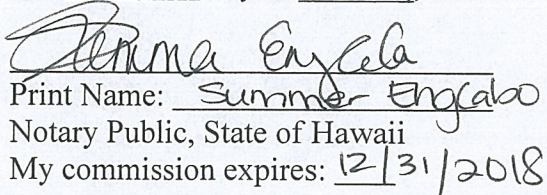 Print Name: Summer Engcabo
Notary Public, State of Hawaii
My commission expires: 12/31/2018